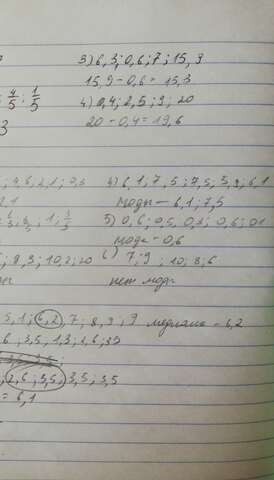 3) 6,3; 0,6; 7; 15,9
15,9 - 0,6 = 15,3
4/5; 1/5
4) 0,4; 2,5; 9; 20
3
20 - 0,4 = 19,6
4) 6,1; 7,5; 7,5; 6,1
2,1
моды - 6,1; 7,5
5) 0,6; 0,5; 0,6; 0,1
мода - 0,6
8,3; 10,2; 20
6) 7; 9; 10; 8; 6
нет моды
5,1; 6,2; 7; 8,9; 9 медиана - 6,2
6; 3,5; 1,3; 2,6; 3,5
2,6; 3,5; 3,5; 3,5
= 6,1